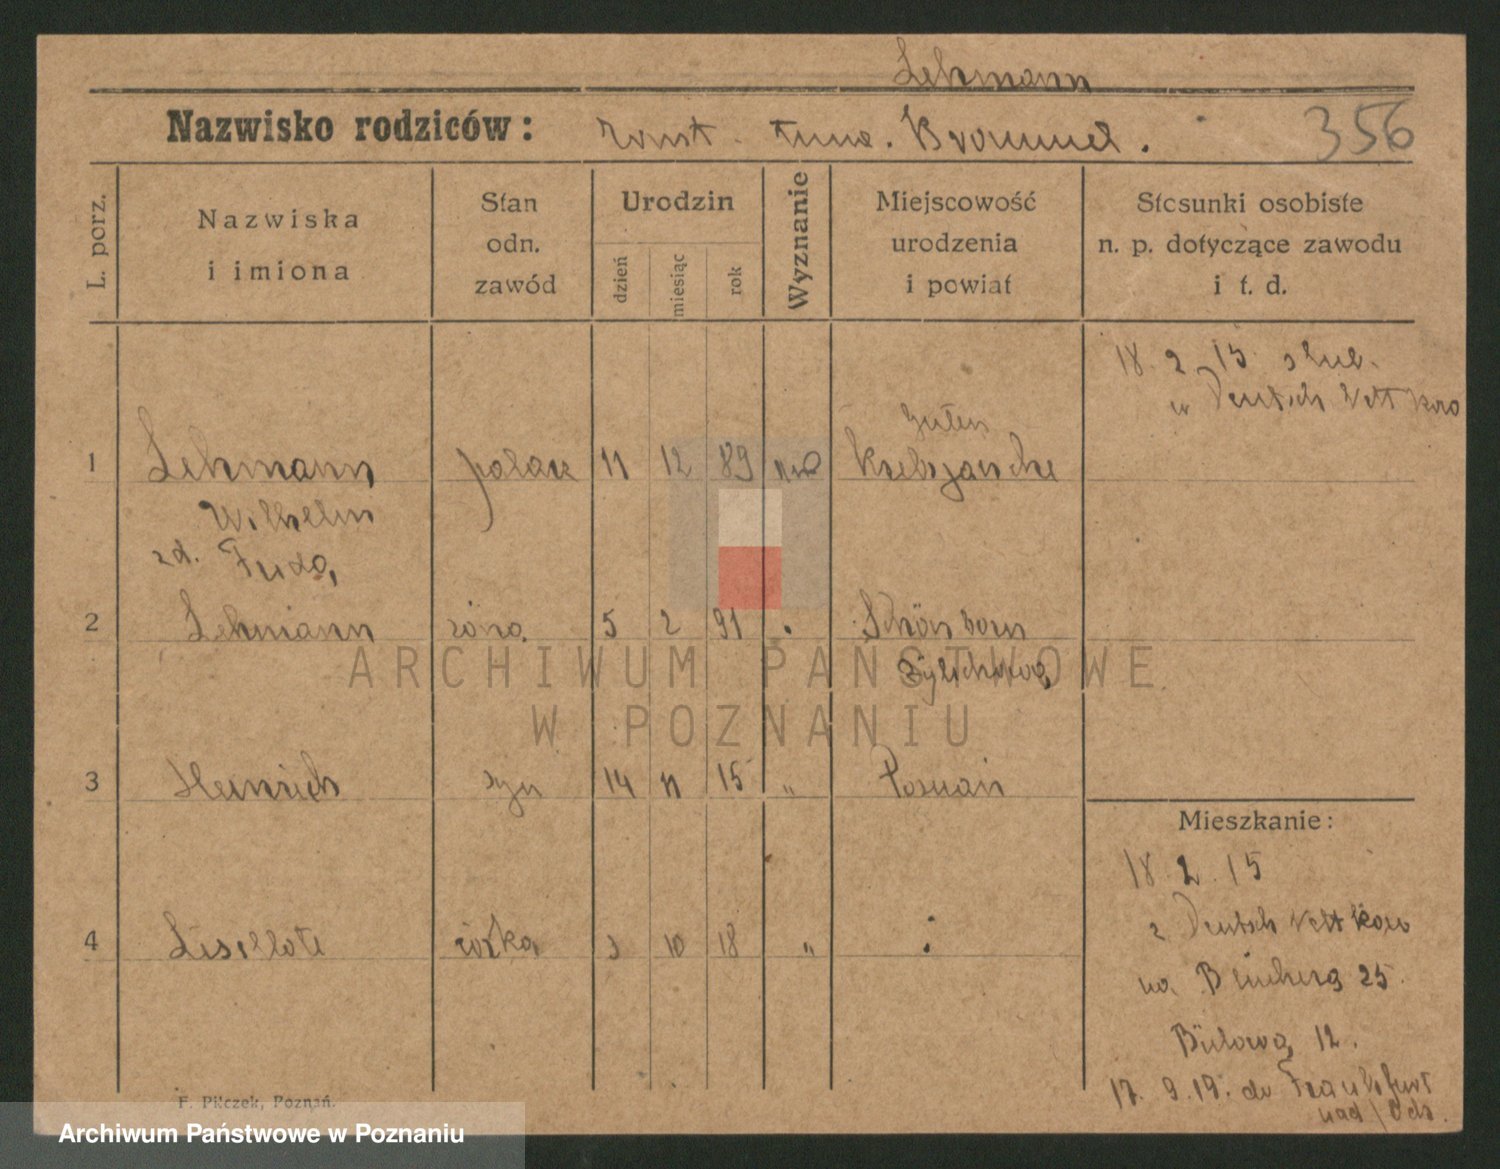 Lehmann
Nazwisko rodziców: Ernst. Anna. Brommel. 356
L. porz.
Nazwiska
i imiona
Stan
odn.
zawód
Urodzin
dzień
miesiąc
rok
Wyznanie
Miejscowość
urodzenia
i powiat
Stosunki osobiste
n. p. dotyczące zawodu
i t. d.
18. 2. 15 ślub.
w Deutsch
1 Lehmann 11 12 89
Wilhelm
zd.
2 Lehmann żona 5 2 91 Schönborn
3 Heinrich syn 14 11 15 " Poznań
4 Lisellote córka 3 10 18 "
Mieszkanie:
18. 2. 15
z Deutsch
25.
12.
17. 9. 19. do Frankfurt
nad / Odr.
F. Pilczek, Poznań.
ARCHIWUM PAŃSTWOWE
W POZNANIU
Archiwum Państwowe w Poznaniu